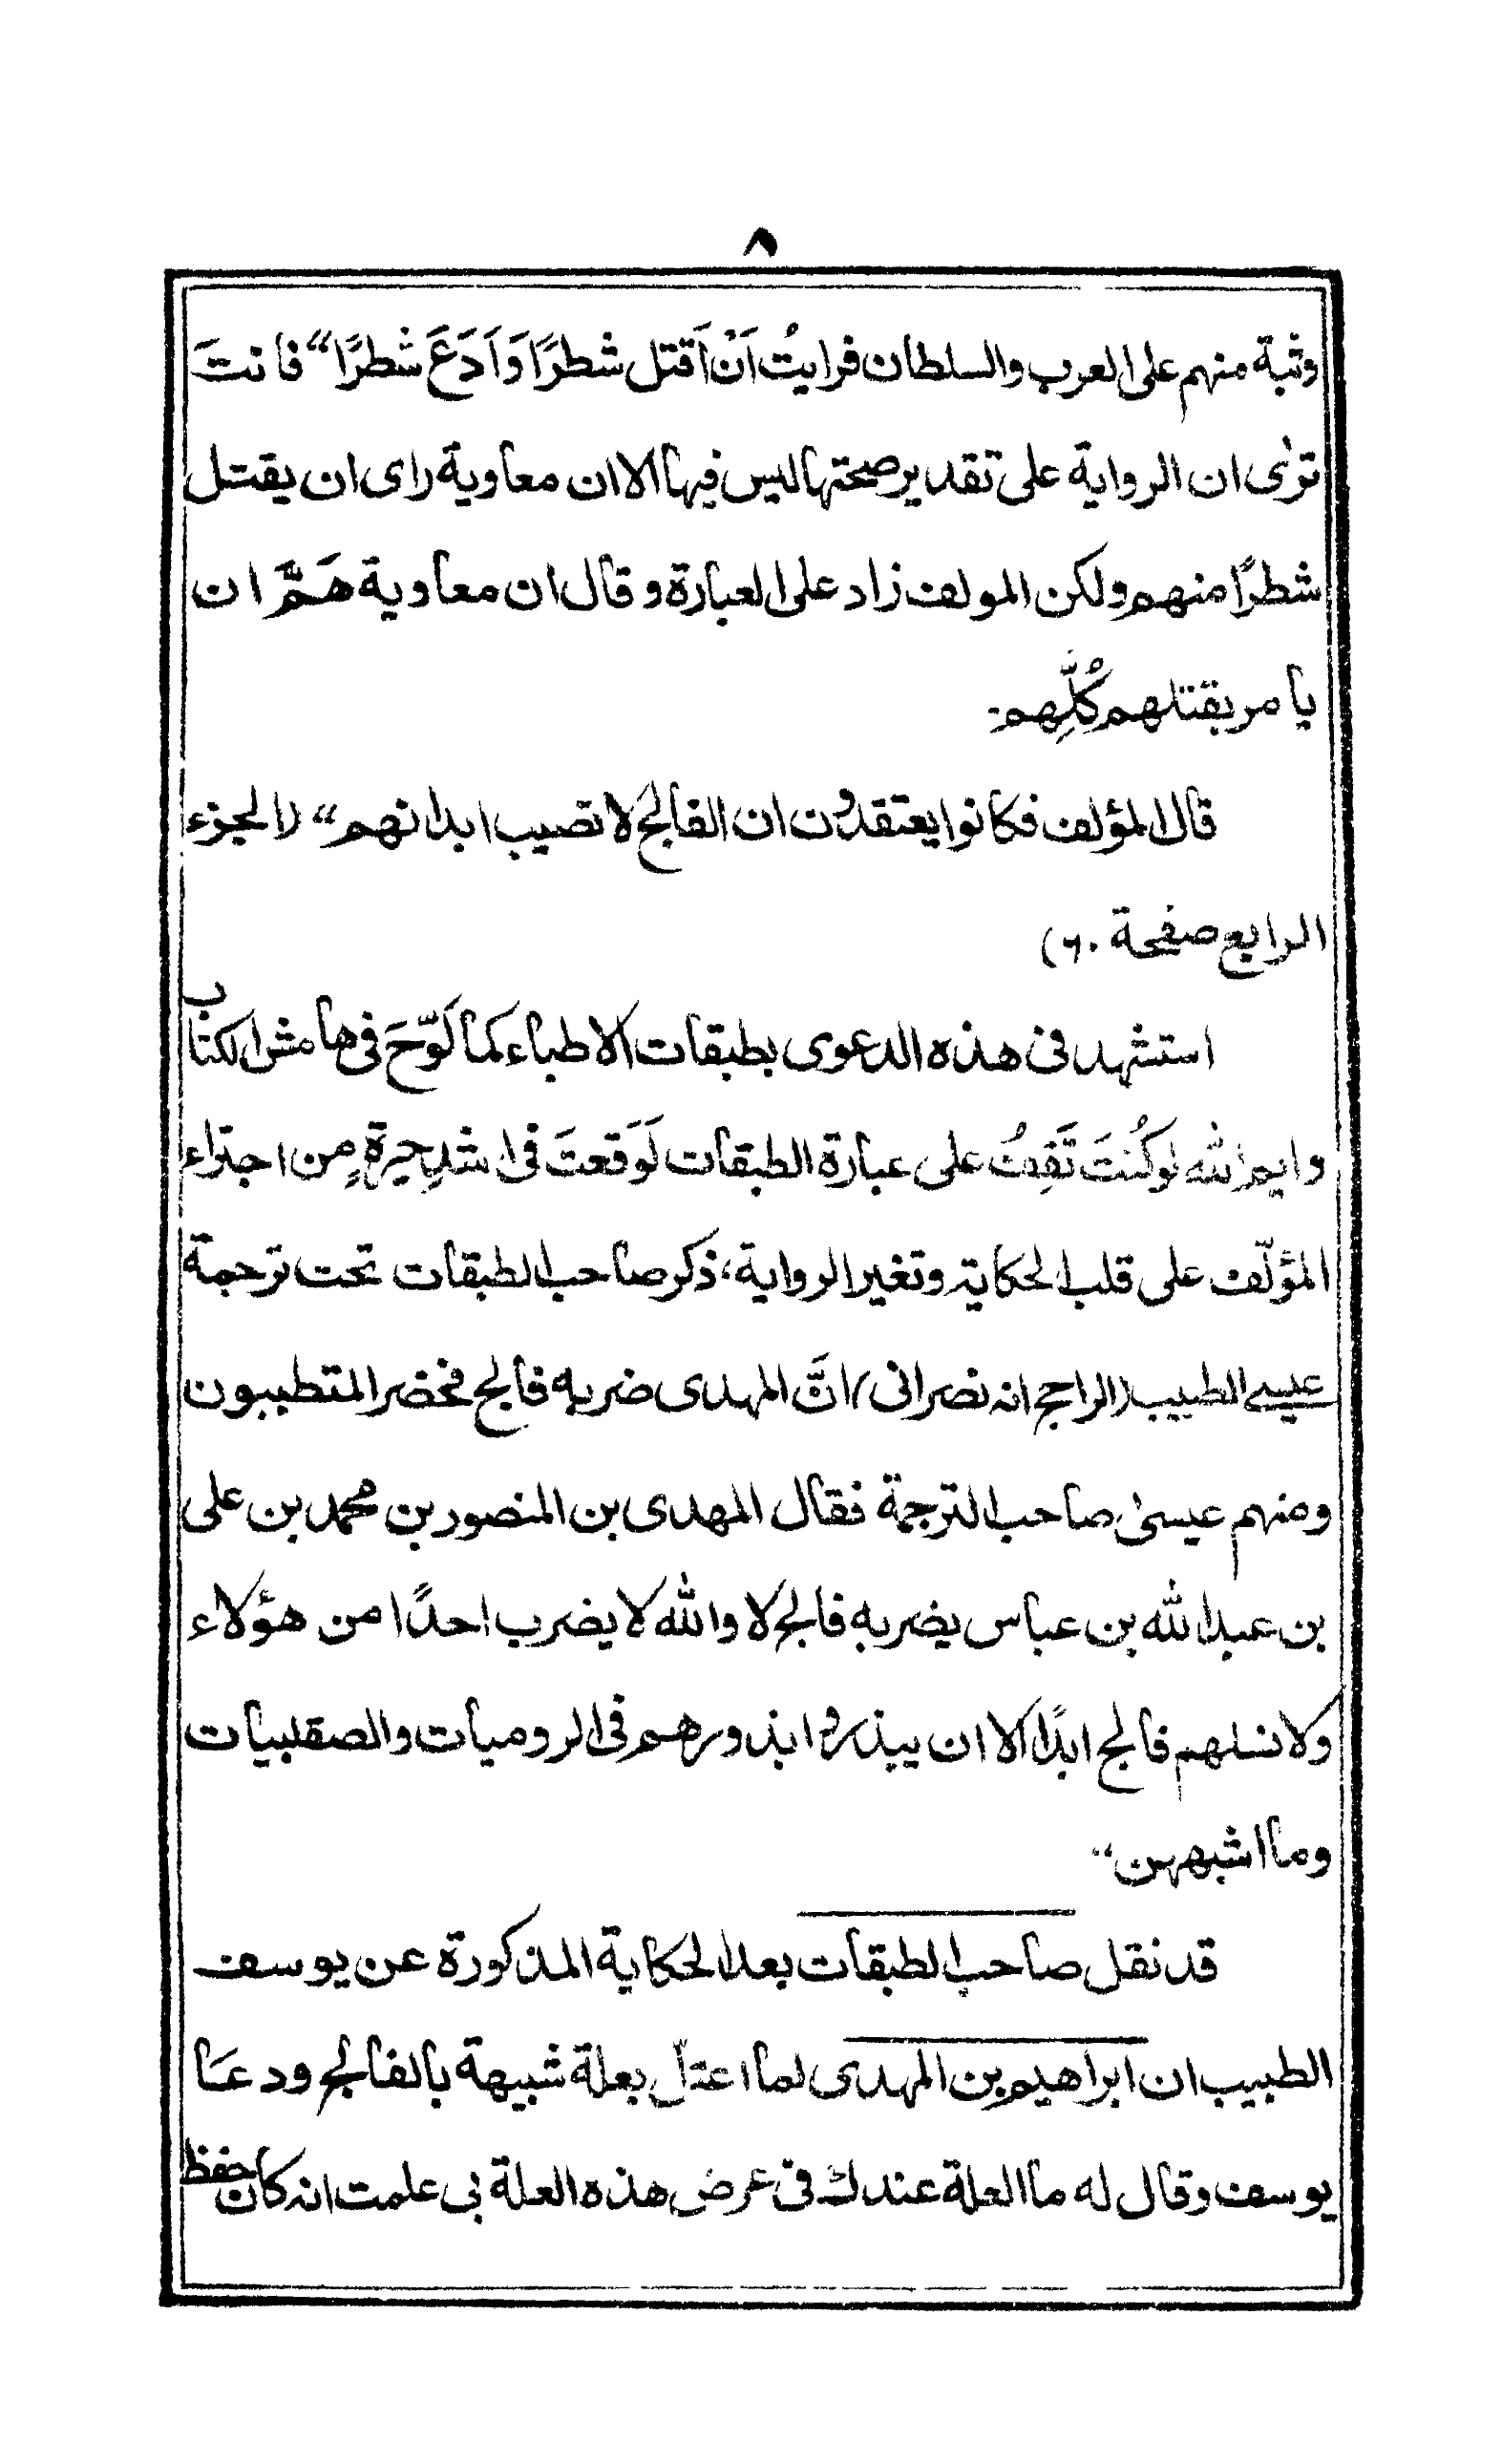 ٨
وثبة منهم على العرب والسلطان فرايتُ اَنْ اَقتل شطرًا وَاَدَعَ شطرًا“ فانتَ
ترٰى ان الرواية على تقدير صحتها ليس فيها الا ان معاوية راى ان يقتل
شطرًا منهم ولكن المولف زاد على العبارة وقال ان معاوية هَمَّ ان
يامر بقتلهم كُلِّهم۔
قال المؤلف فكانوا يعتقدون ان الفالج لا تصيب ابدانهم“ (الجزء
الرابع صفحة ٦٠)
استشهد فى هذه الدعوى بطبقات الاطباء كما لَوّحَ فى هامش الكتاب
وايم الله لوكُنتَ تَقِفُ على عبارة الطبقات لَوَقعتَ فى اشدِ حيرةٍ من اجتراء
المؤلّف على قلب الحكاية وتغير الرواية، ذكر صاحب الطبقات تحت ترجمة
عيسى الطبيب (الراجح انه نصرانى) انَّ المهدى ضربه فالج فحضر المتطببون
ومنهم عيسىٰ صاحب الترجمة فقال المهدى بن المنصور بن محمد بن على
بن عبد الله بن عباس يضربه فالج لا والله لا يضرب احدًا من هؤلاء
ولا نسلهم فالج ابدًا الا ان يبذروا بذورهم فى الروميات والصقلبيات
وما اشبههن“
قد نقل صاحب الطبقات بعد الحكاية المذكورة عن يوسف
الطبيب ان ابراهيم بن المهدى لما اعتلّ بعلة شبيهة بالفالج ودعَا
يوسف وقال له ما العلة عندك فى عرض هذه العلة بى علمت انه كان حفظ